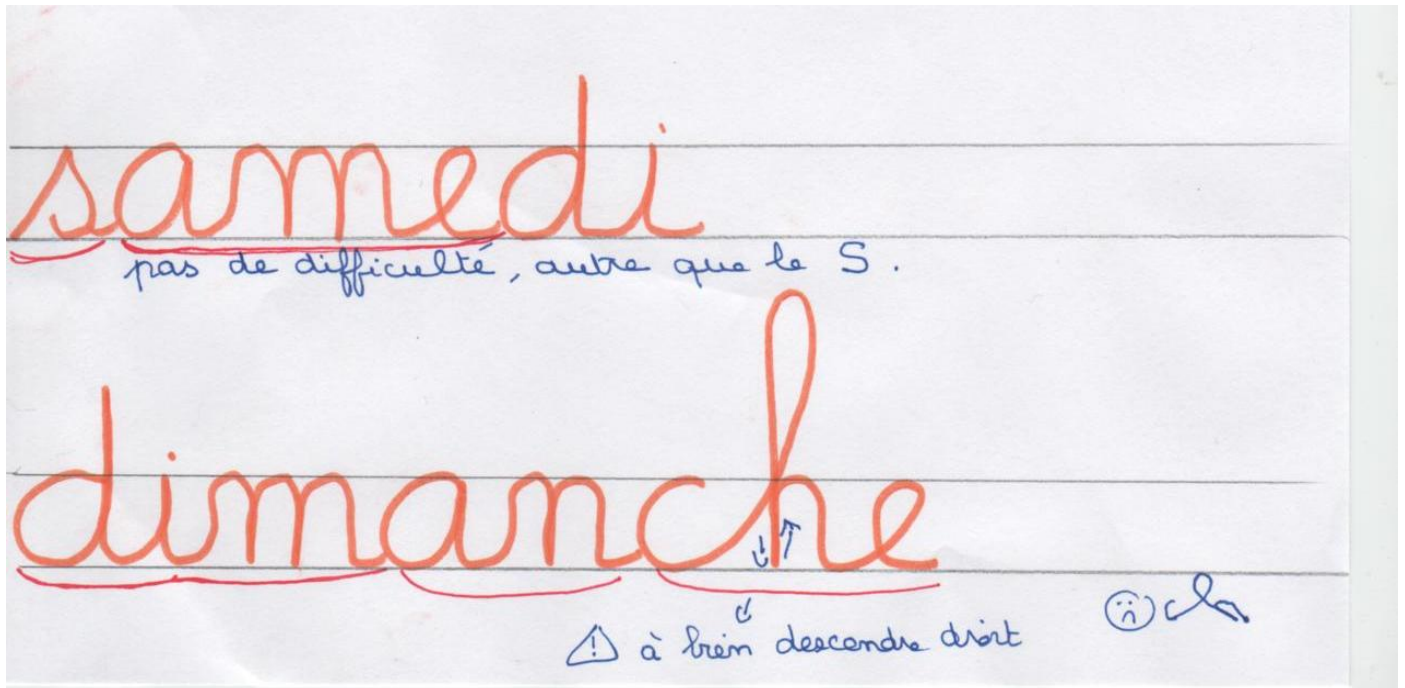 samedi
pas de difficulté, autre que le S.
dimanche
⚠ à bien descendre droit
☹ ch